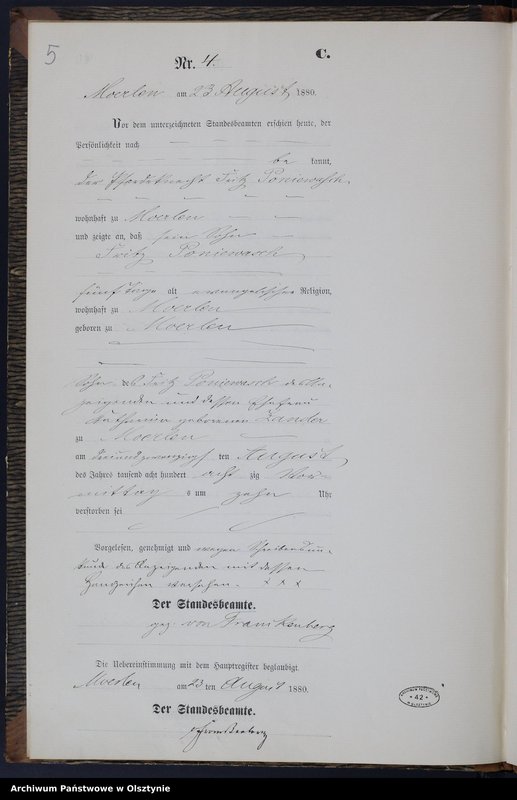 5
C.
Nr. 4.
Moerlen am 23 August 1880.
Vor dem unterzeichneten Standesbeamten erschien heute, der
Persönlichkeit nach
be kannt,
der Pferdeknecht Fritz Poniewasch
wohnhaft zu Moerlen
und zeigte an, daß sein Sohn
Fritz Poniewasch
fünf Tage alt evangelischer Religion,
wohnhaft zu Moerlen
geboren zu Moerlen
Sohn des Fritz Poniewasch des An-
zeigenden und dessen Ehefrau
geborenen Zander
zu Moerlen
am ten August
des Jahres tausend acht hundert acht zig Vor-
mittag s um zehn Uhr
verstorben sei
Vorgelesen, genehmigt und wegen Schreibensun-
kunde des Anzeigenden mit dessen
Handzeichen versehen. x x x
Der Standesbeamte.
gez. von Frankenberg
Die Uebereinstimmung mit dem Hauptregister beglaubigt
Moerlen am 23 ten August 1880.
Der Standesbeamte.
ARCHIWUM PAŃSTWOWE
* 42 *
W OLSZTYNIE
Archiwum Państwowe w Olsztynie